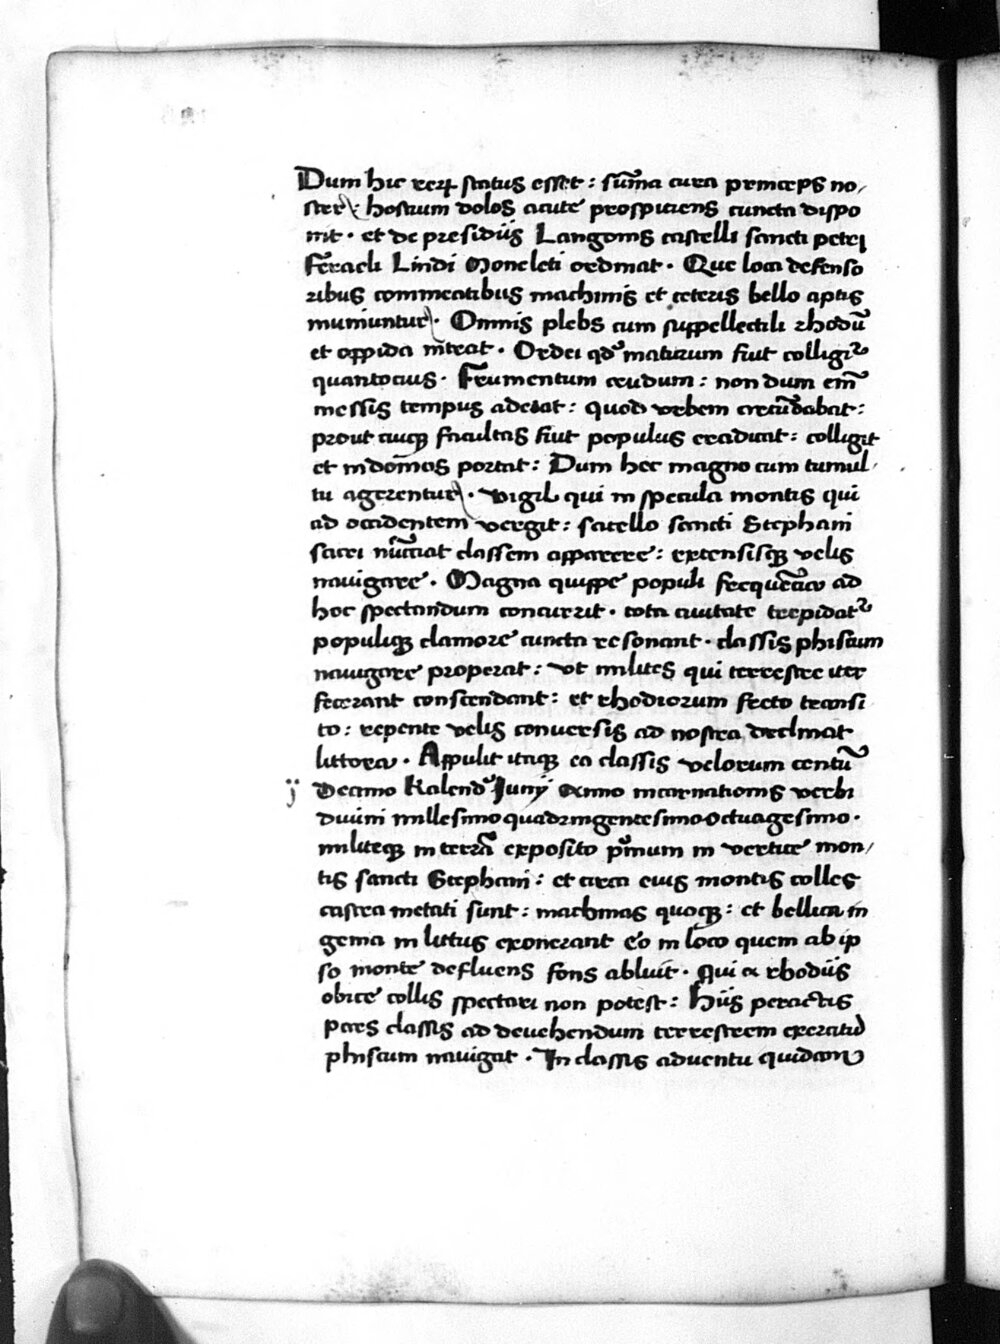 Dum hic rerꝝ status esset : sum̄a cura princeps no/
ster : hostium dolos acute prospiciens cuncta dispo
nit · et de presidiis Langonis castelli sancti petri
Fēracli Lindi Moncleti ordinat · Que loca defenso
ribus commeatibus machinis et ceteris bello aptis
muniuntur · Omnis plebs cum suppellectili rhodū
et oppida īntrat · Ordei qd̄ maturum fuit colligit᷑
quantocius · Frumentum crudum : non dum em̄
messis tempus aderat : quod vrbem circūdabat :
prout cuiqꝫ facultas fuit populus eradicat : colligit
et in domos portat : Dum hec magno cum tumul/
tu agerentur · vigil qui in specula montis qui
ad occidentem vergit : sacello sancti Stephani
sacri nūciat classem apparere : extensisqꝫ velis
nauigare · Magna quippe populi frequētia ad
hoc spectandum concurrit · tota ciuitate trepidat᷑
populiqꝫ clamore cuncta resonant · classis phiscum
nauigare properat : vt milites qui terrestre iter
fecerant conscendant : et rhodiorum freto transi
to : repente velis conuersis ad nostra declinat
littora · Appulit itaqꝫ ea classis velorum centū
ij Decimo Kalend̄ Junij Anno incarnationis verbi
diuini millesimo quadringentesimo octuagesimo ·
militeqꝫ in terrā exposito p̄mum in vertice mon/
tis sancti Stephani : et circa eius montis colles
castra metati sunt : machinas quoqꝫ : et bellica in
genia in littus exonerant eo in loco quem ab ip
so monte defluens fons abluit · Qui a rhodiis
obice collis spectari non potest : Hiis peractis
pars classis ad deuehendum terrestrem exercitū
phiscum nauigat · In classis aduentu quidam